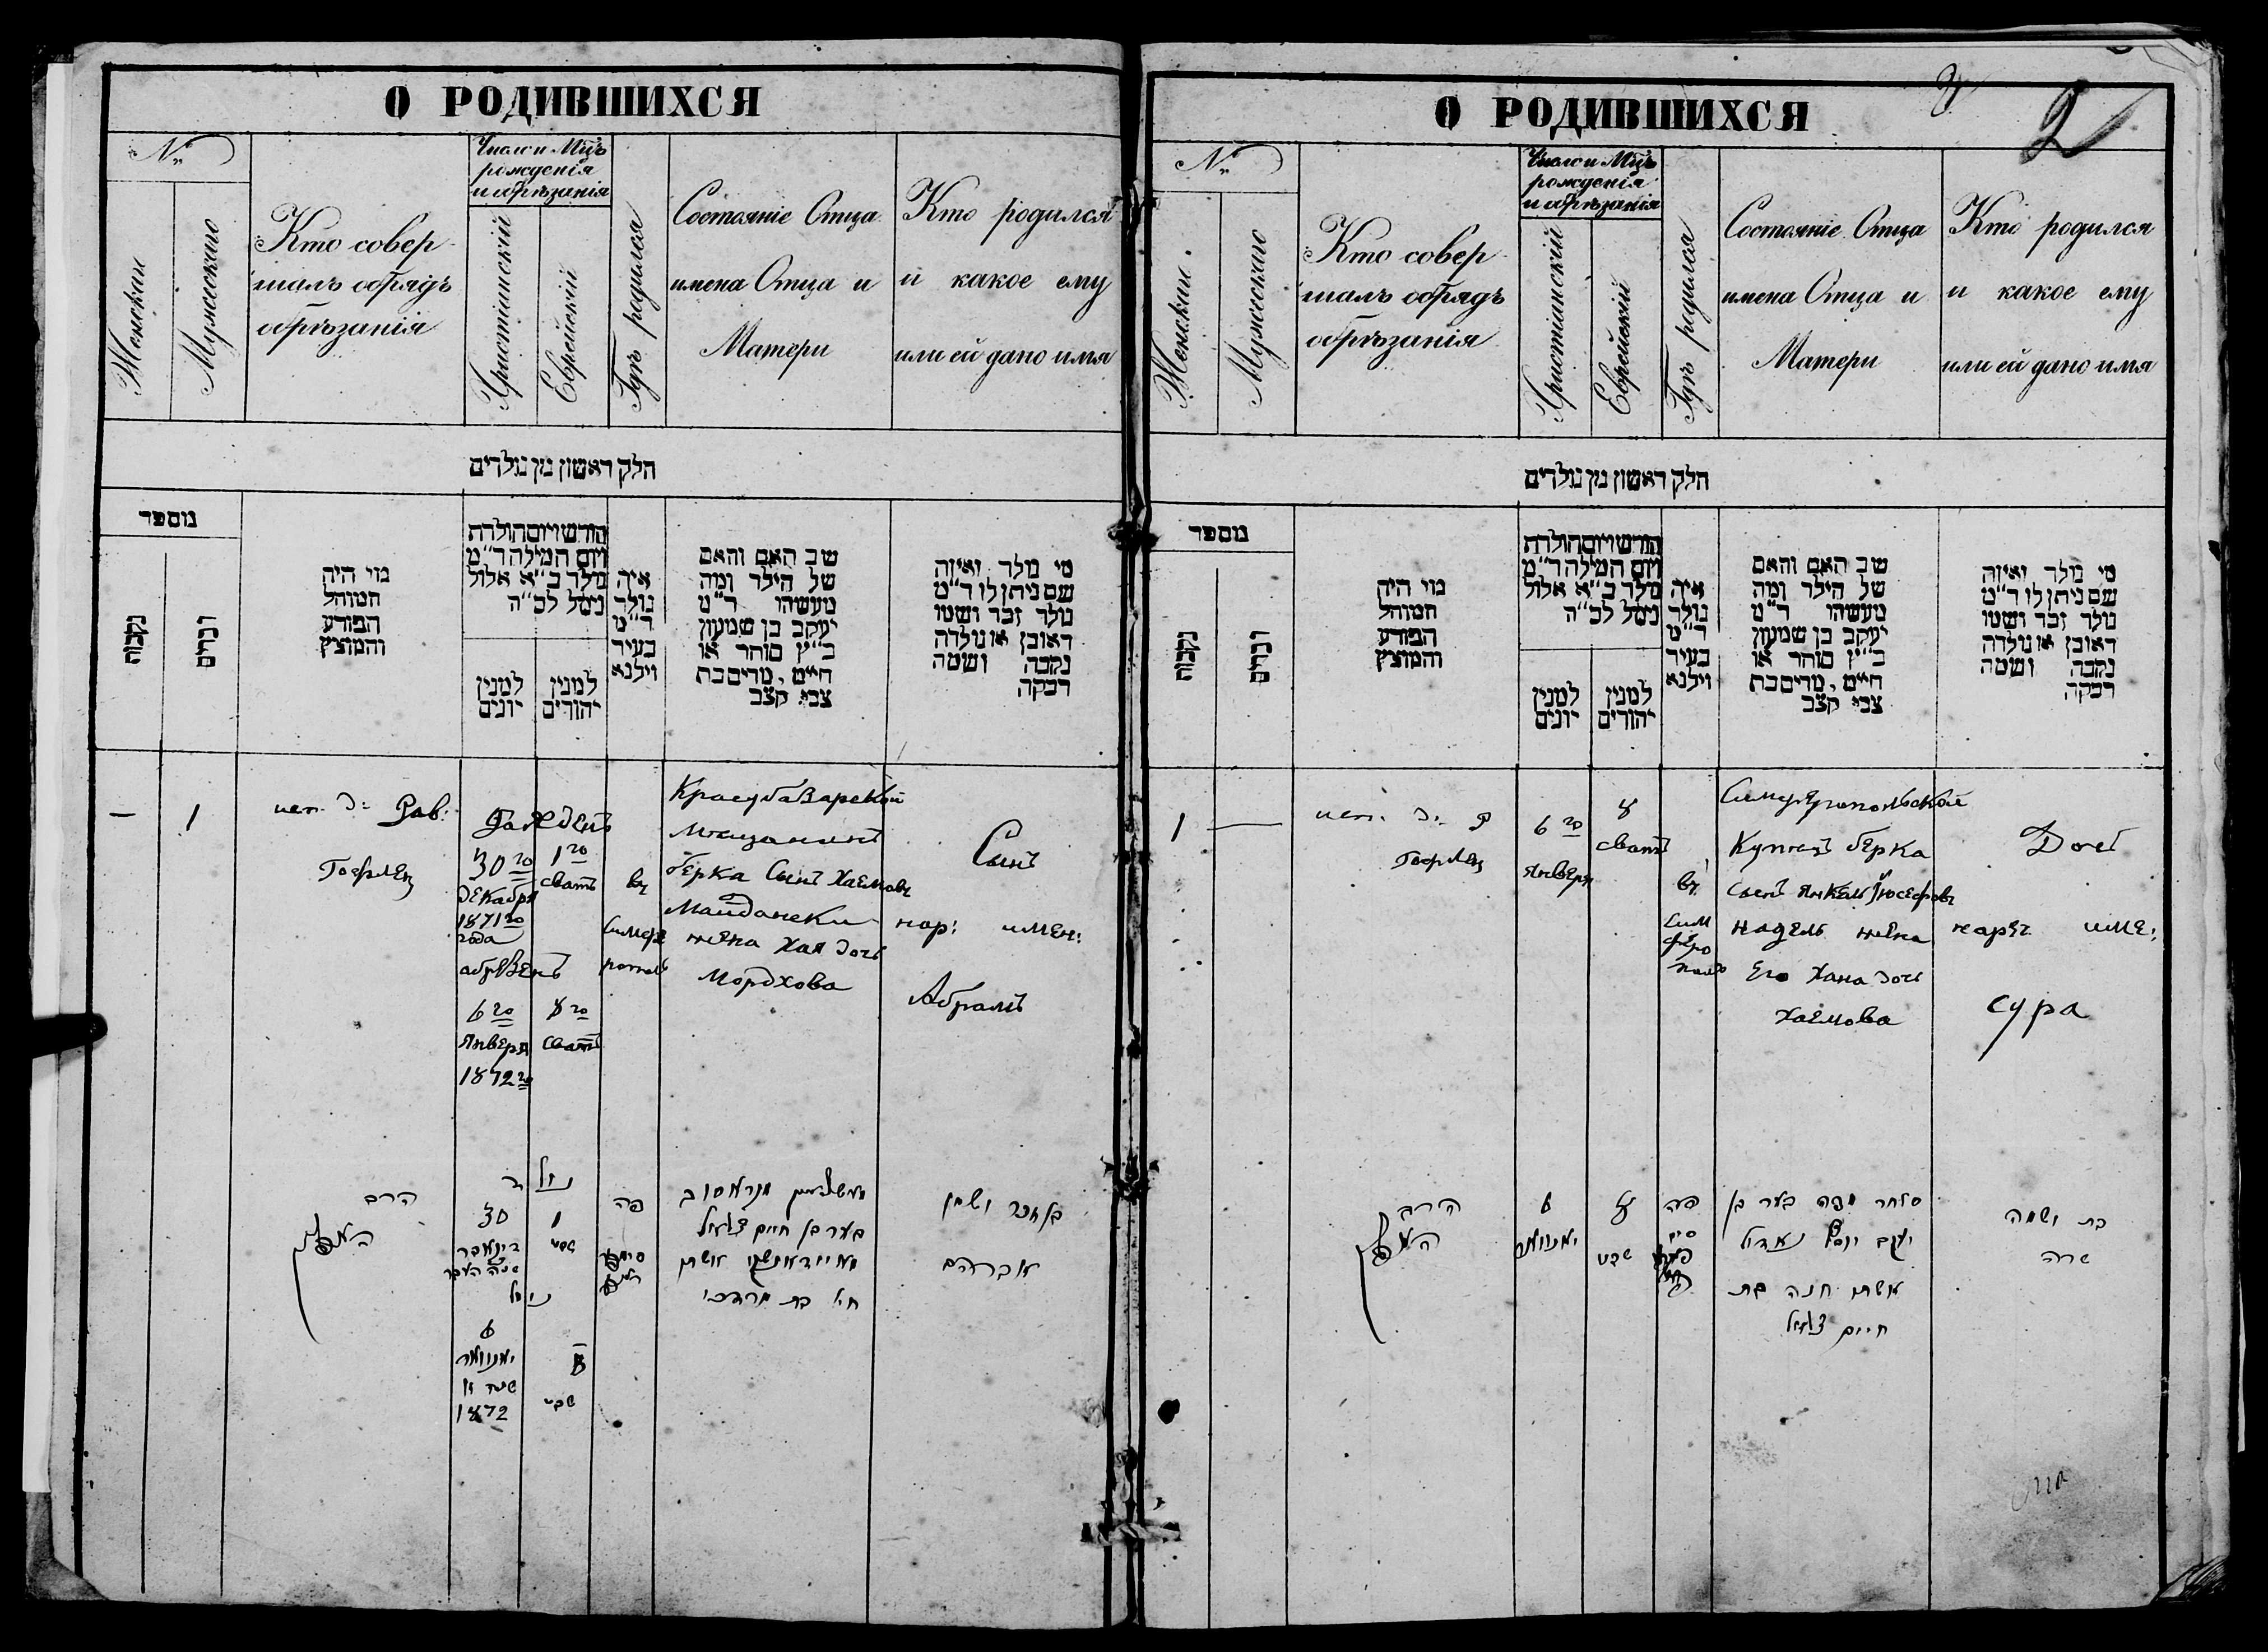 О РОДИВШИХСЯ
№
Женскаго
Мужескаго
Кто совер
шалъ обрядъ
обрѣзанія
Число и Мцъ
рожденія
и обрѣзанія
Христіанскій
Еврейскій
Гдѣ родился
Состояніе Отца
имена Отца и
Матери
Кто родился
и какое ему
или ей дано имя
חלק ראשון מן נולדים
מספר
נקבות
זכרים
מי היה
המוהל
הפורע
והמוצץ
חודש ויום הולדת
ויום המילה ד"מ
נולד כ"א אלול
נימל לכ"ה
למנין
יונים
למנין
יהודים
איה
נולד
ד"מ
בעיר
ווילנא
שב האם והאם
של הילד ומה
מעשהו ד"מ
יעקב בן שמעון
כ"ץ סוחר או
חייט, מרים בת
צבי קצב
מי נולד ואיזה
שם ניתן לו ד"מ
נולד זכר ושמו
ראובן או נולדה
נקבה ושמה
רבקה
—
1
исп. д: Рав:
Рожденъ
30го
Декабря
1871го
года
обрѣзенъ
6го
Января
1872го
1го
сватъ
8го
сватъ
въ
Симфе
рополь
Мещанинъ
берка Сынъ Хаемовъ
Майдански
жена Хая дочь
Мордхова
Сынъ
нар: имен:
Абрамъ
הרב
נולד
30
דיקאבר
שנה העבר
נימול
6
יאנוואר
1872
1
שבט
8
שבט
פה
בער בן חיים
אשתו
חי' בת מרדכי
בן זכר ושמו
אברהם
О РОДИВШИХСЯ
2
№
Женскаго
Мужескаго
Кто совер
шалъ обрядъ
обрѣзанія
Число и Мцъ
рожденія
и обрѣзанія
Христіанскій
Еврейскій
Гдѣ родился
Состояніе Отца
имена Отца и
Матери
Кто родился
и какое ему
или ей дано имя
חלק ראשון מן נולדים
מספר
נקבות
זכרים
מי היה
המוהל
הפורע
והמוצץ
חודש ויום הולדת
ויום המילה ד"מ
נולד כ"א אלול
נימל לכ"ה
למנין
יונים
למנין
יהודים
איה
נולד
ד"מ
בעיר
ווילנא
שב האם והאם
של הילד ומה
מעשהו ד"מ
יעקב בן שמעון
כ"ץ סוחר או
חייט, מרים בת
צבי קצב
מי נולד ואיזה
שם ניתן לו ד"מ
נולד זכר ושמו
ראובן או נולדה
נקבה ושמה
רבקה
1
—
исп. д: Р
6го
Января
8
сватъ
въ
Сим
феро
поль
Симферопольской
Купецъ берка
сынъ Янкель Юосефовъ
Надель жена
Его Хана дочь
Хаемова
Дочь
нареч име:
сура
הרב
6
יאנוואר
8
שבט
פה
סוחר מפה בער בן
יעקב יוסף נאדיל
אשתו חנה בת
חיים
בת ושמה
שרה